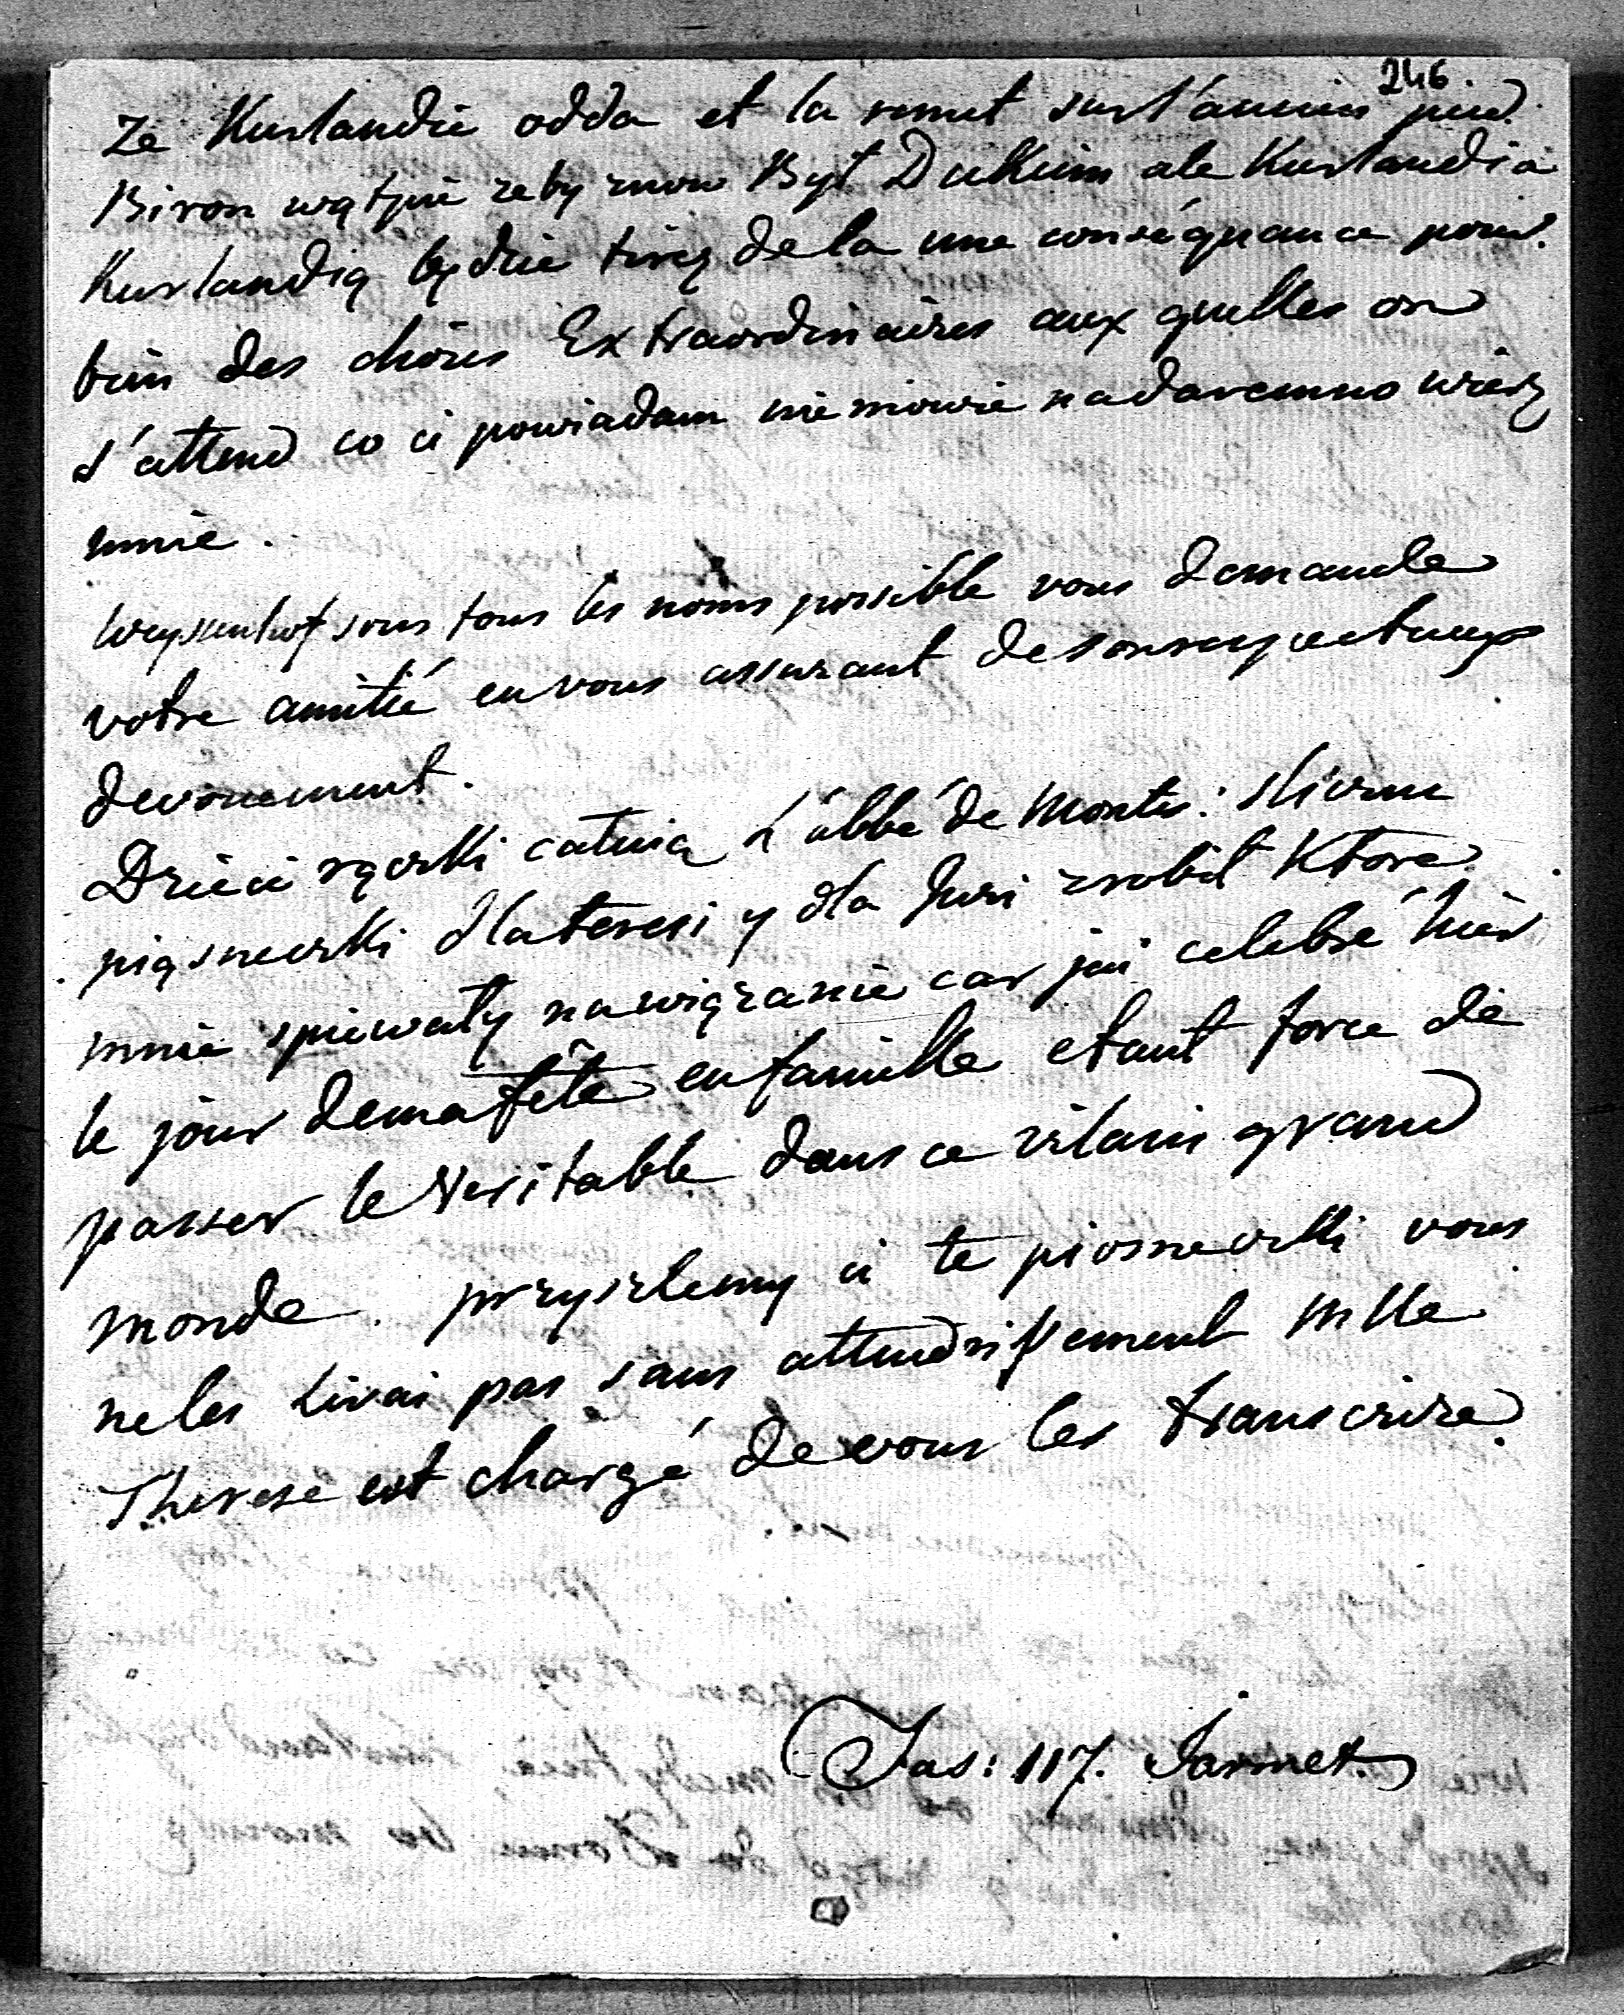 246.
ze Kurlandie odda et la remet sur l'ancien pied.
Biron wątpie zeby znow Był Dukiem ale Kurlandia
Kurlandią będzie tirez de la une conséquance pour
bien des choses Extraordinaires aux quelles on
s'attend co ci powiadam nie mowie nadaremno wierz
mnie.
Weyssenhof sous tous les noms possible vous demande
votre amitié en vous assurant de son respectueux
devouement.
Dzieci rączki całuią L'abbé de Monte: sliczne
piąsneczki dla Teresi y dla Juzi zrobił Ktore
mnie spiewały na wiązanie car jai celebré hier
le jour de ma fête en famille etant force de
passer le Veritable dans ce vilain grand
monde. przyszlemy ci te piosneczki vous
ne les lirai pas sans attendrissement Mlle
Therese est chargé de vous les transcrire.
Jas: 117. Jarmet.